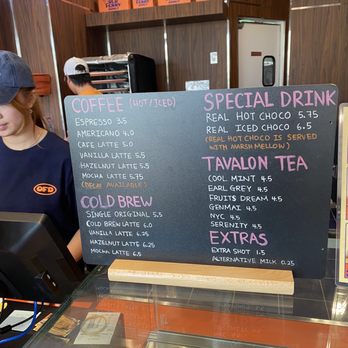 COFFEE (HOT/ICED)
ESPRESSO 3.5
AMERICANO 4.0
CAFE LATTE 5.0
VANILLA LATTE 5.5
HAZELNUT LATTE 5.5
MOCHA LATTE 5.75
(DECAF AVAILABLE)
COLD BREW
SINGLE ORIGINAL 5.5
COLD BREW LATTE 6.0
VANILLA LATTE 6.25
HAZELNUT LATTE 6.25
MOCHA LATTE 6.5
SPECIAL DRINK
REAL HOT CHOCO 5.75
REAL ICED CHOCO 6.5
(REAL HOT CHOCO IS SERVED
WITH MARSHMELLOW)
TAVALON TEA
COOL MINT 4.5
EARL GREY 4.5
FRUITS DREAM 4.5
GENMAI 4.5
NYC 4.5
SERENITY 4.5
EXTRAS
EXTRA SHOT 1.5
ALTERNATIVE MILK 0.25
OFD